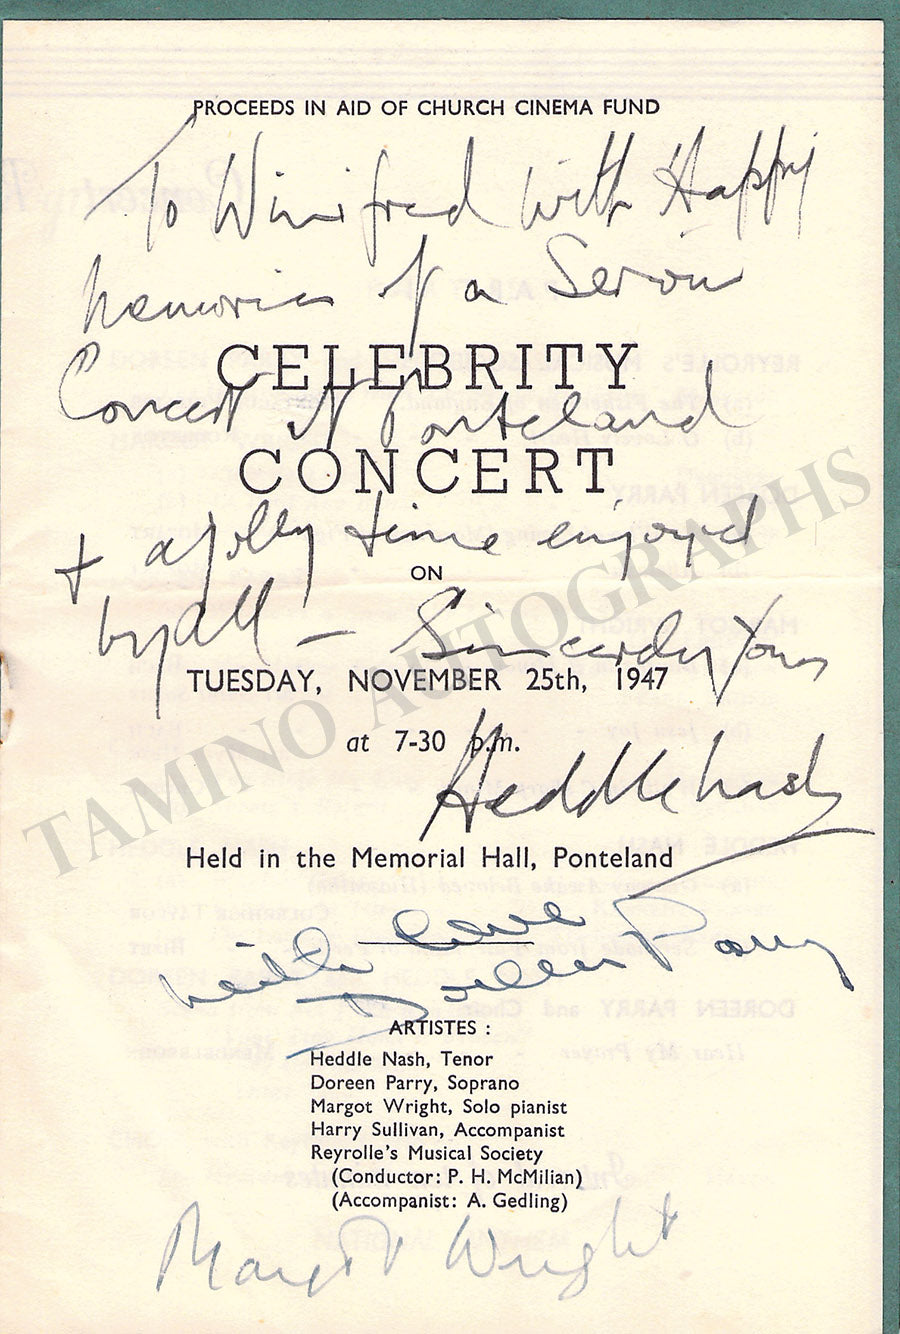 PROCEEDS IN AID OF CHURCH CINEMA FUND
To Winifred with Happy
Memories of a Serious
CELEBRITY
Concert at Ponteland
CONCERT
+ a jolly time enjoyed
ON
by all — Sincerely Yours
TUESDAY, NOVEMBER 25th, 1947
at 7-30 p.m.
Heddle Nash
Held in the Memorial Hall, Ponteland
with love
Doreen Parry
ARTISTES :
Heddle Nash, Tenor
Doreen Parry, Soprano
Margot Wright, Solo pianist
Harry Sullivan, Accompanist
Reyrolle's Musical Society
(Conductor: P. H. McMilian)
(Accompanist: A. Gedling)
Margot Wright
TAMINO AUTOGRAPHS